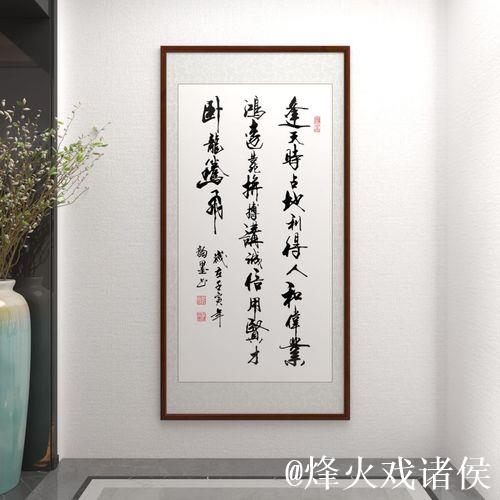 逢天時占地利得人和偉業
鴻遠靠拚搏講誠信用賢才
卧龍騰飛
歲在壬寅年
翰墨书
@烽火戏诸侯